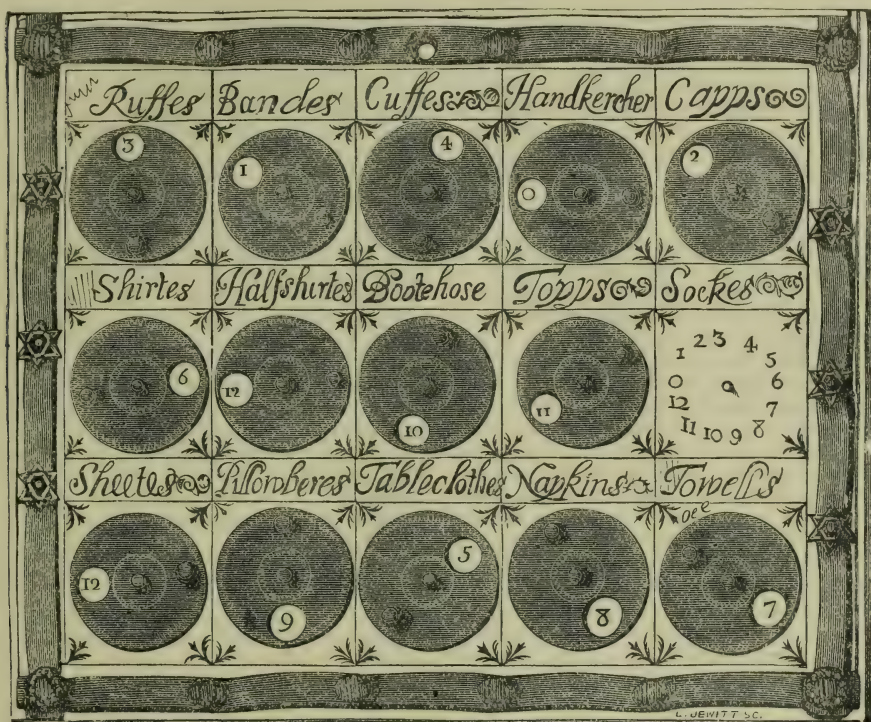 Ruffes Bandes Cuffes Handkercher Capps
3 1 4 0 2
Shirtes Halfshirtes Bootehose Topps Sockes
6 12 10 11 0 1 2 3 4 5 6 7 8 9 10 11 12
Sheetes Pillowberes Tableclothes Napkins Towells
12 9 5 8 7
L. JEWITT SC.